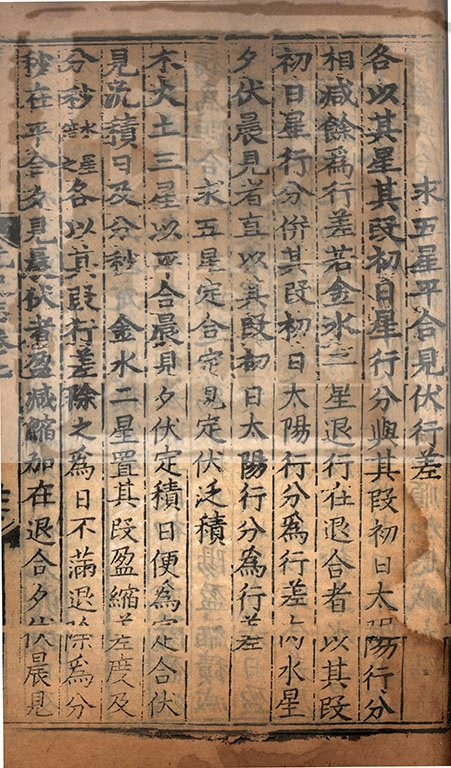 求五星平合見伏行差
各以其星其段初日星行分與其段初日太陽行分
相減餘爲行差若金水二星退行在退合者以其段
初日星行分併其段初日太陽行分爲行差內水星
夕伏晨見者直以其段初日太陽行分爲行差
求五星定合定見定伏泛積
木火土三星以平合晨見夕伏定積日便爲定合伏
見泛積日及分秒金水二星置其段盈縮差度及
分秒水星倍之各以其段行差除之爲日不滿退除爲分
秒在平合夕見晨伏者盈減縮加在退合夕伏晨見